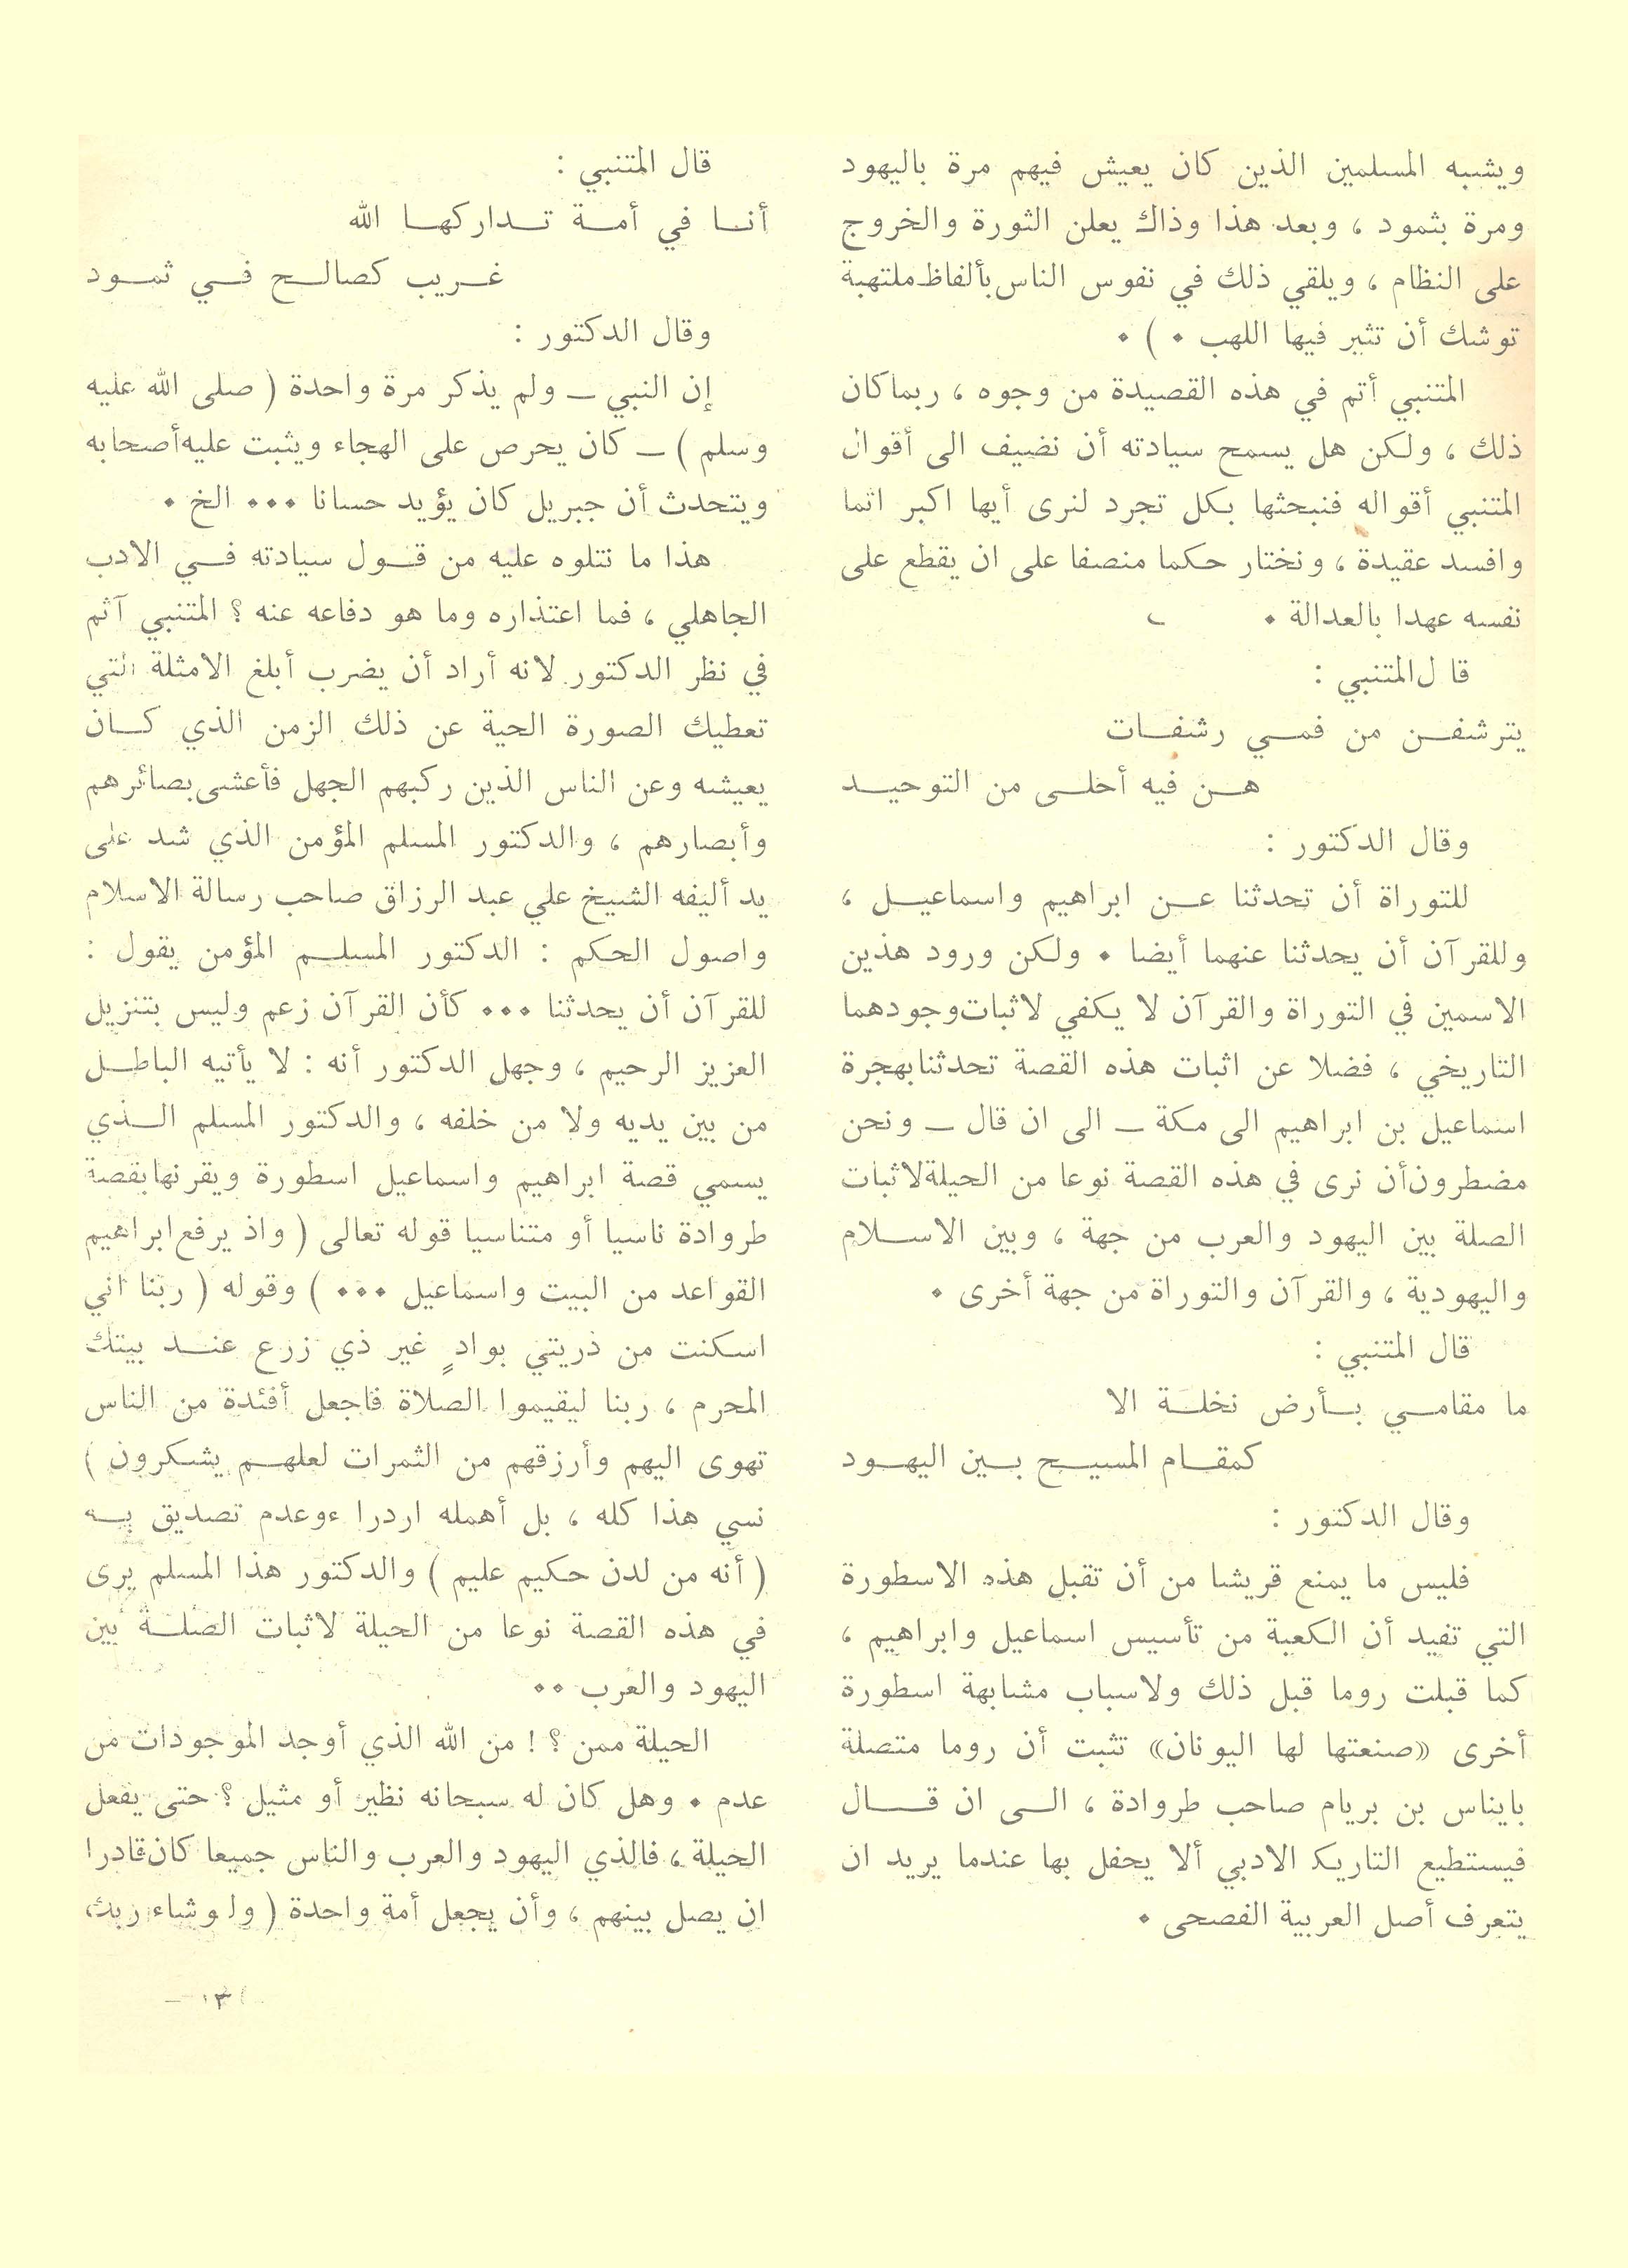 ويشبه المسلمين الذين كان يعيش فيهم مرة باليهود
ومرة بثمود ، وبعد هذا وذاك يعلن الثورة والخروج
على النظام ، ويلقي ذلك في نفوس الناس بألفاظ ملتهبة
توشك أن تثير فيها اللهب ٠ ) ٠
المتنبي أتم في هذه القصيدة من وجوه ، ربما كان
ذلك ، ولكن هل يسمح سيادته أن نضيف الى أقوال
المتنبي أقواله فنبحثها بكل تجرد لنرى أيها اكبر اثما
وافسد عقيدة ، ونختار حكما منصفا على ان يقطع على
نفسه عهدا بالعدالة ٠
قا ل المتنبي :
يترشفـــن من فمـــي رشفـــات
هـــن فيه أحلـــى من التوحيـــد
وقال الدكتور :
للتوراة أن تحدثنا عـــن ابراهيم واسماعيـــل ،
وللقرآن أن يحدثنا عنهما أيضا ٠ ولكن ورود هذين
الاسمين في التوراة والقرآن لا يكفي لاثبات وجودهما
التاريخي ، فضلا عن اثبات هذه القصة تحدثنا بهجرة
اسماعيل بن ابراهيم الى مكة ـ الى ان قال ـ ونحن
مضطرون أن نرى في هذه القصة نوعا من الحيلة لاثبات
الصلة بين اليهود والعرب من جهة ، وبين الاســـلام
واليهودية ، والقرآن والتوراة من جهة أخرى ٠
قال المتنبي :
ما مقامـــي بـــأرض نخلـــة الا
كمقـــام المسيـــح بـــين اليهـــود
وقال الدكتور :
فليس ما يمنع قريشا من أن تقبل هذه الاسطورة
التي تفيد أن الكعبة من تأسيس اسماعيل وابراهيم ،
كما قبلت روما قبل ذلك ولاسباب مشابهة اسطورة
أخرى «صنعتها لها اليونان» تثبت أن روما متصلة
باينياس بن بريام صاحب طروادة ، الـــى ان قـــال
فيستطيع التاريك الادبي ألا يحفل بها عندما يريد ان
يتعرف أصل العربية الفصحى ٠
قال المتنبي :
أنـــا في أمـــة تـــداركهـــا الله
غـــريب كصالـــح فـــي ثمـــود
وقال الدكتور :
إن النبي ـ ولم يذكر مرة واحدة ( صلى الله عليه
وسلم ) ـ كان يحرص على الهجاء ويثبت عليه أصحابه
ويتحدث أن جبريل كان يؤيد حسانا ٠٠٠ الخ ٠
هذا ما نتلوه عليه من قـــول سيادته فـــي الادب
الجاهلي ، فما اعتذاره وما هو دفاعه عنه ؟ المتنبي آثم
في نظر الدكتور لانه أراد أن يضرب أبلغ الامثلة التي
تعطيك الصورة الحية عن ذلك الزمن الذي كـــان
يعيشه وعن الناس الذين ركبهم الجهل فأعشى بصائرهم
وأبصارهم ، والدكتور المسلم المؤمن الذي شد على
يد أليفه الشيخ علي عبد الرزاق صاحب رسالة الاسلام
واصول الحكم : الدكتور المسلـــم المؤمن يقول :
للقرآن أن يحدثنا ٠٠٠ كأن القرآن زعم وليس بتنزيل
العزيز الرحيم ، وجهل الدكتور أنه : لا يأتيه الباطـــل
من بين يديه ولا من خلفه ، والدكتور المسلم الـــذي
يسمي قصة ابراهيم واسماعيل اسطورة ويقرنها بقصة
طروادة ناسيا أو متناسيا قوله تعالى ( واذ يرفع ابراهيم
القواعد من البيت واسماعيل ٠٠٠ ) وقوله ( ربنا اني
اسكنت من ذريتي بوادٍ غير ذي زرع عنـــد بيتك
المحرم ، ربنا ليقيموا الصلاة فاجعل أفئدة من الناس
تهوى اليهم وأرزقهم من الثمرات لعلهـــم يشكرون )
نسي هذا كله ، بل أهمله اردرا ءوعدم تصديق بـــه
( أنه من لدن حكيم عليم ) والدكتور هذا المسلم يرى
في هذه القصة نوعا من الحيلة لاثبات الصلـــة بين
اليهود والعرب ٠٠
الحيلة ممن ؟ ! من الله الذي أوجد الموجودات من
عدم ٠ وهل كان له سبحانه نظير أو مثيل ؟ حتى يفعل
الحيلة ، فالذي اليهود والعرب والناس جميعا كان قادرا
ان يصل بينهم ، وأن يجعل أمة واحدة ( ولو شاء ربك